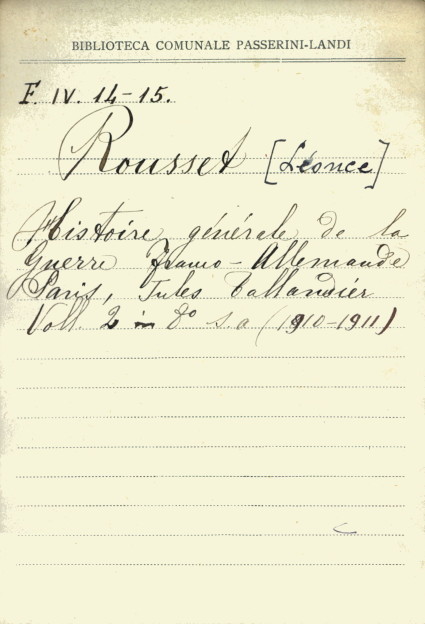 BIBLIOTECA COMUNALE PASSERINI-LANDI
F. IV. 14-15.
Rousset [Léonce]
Histoire générale de la
Guerre Franco-Allemande
Paris, Jules Tallandier
Voll. 2 in 8° s.a (1910-1911)